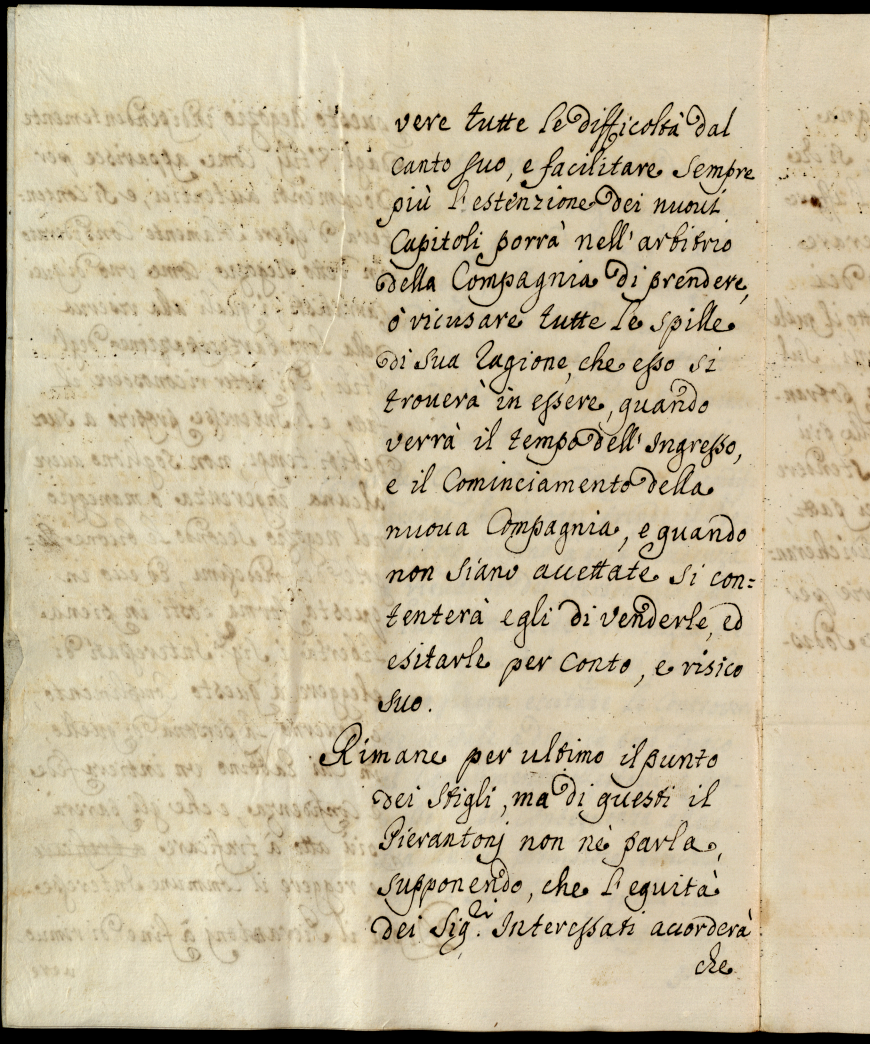 vere tutte le difficoltà dal
canto suo, e facilitare sempre
più l'estenzione dei nuoui
Capitoli porrà nell'arbitrio
della Compagnia di prendere,
ò ricusare tutte le spille
di sua ragione, che esso si
trouerà in essere, quando
verrà il tempo dell'Ingresso,
e il Cominciamento della
nuoua Compagnia, e quando
non siano accettate si con=
tenterà egli di venderle, ed
esitarle per conto, e risico
suo.
Rimane per ultimo il punto
dei stigli, ma di questi il
Pierantonj non nè parla,
supponendo, che l'equità
dei Sig.ri Interessati accorderà
che